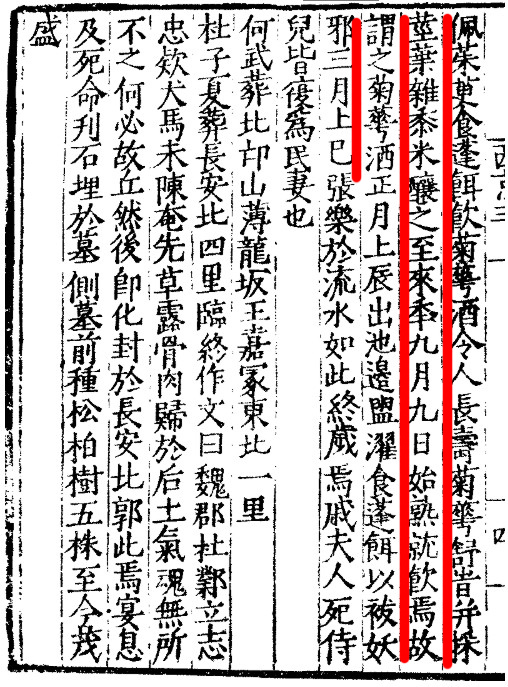 佩茱萸食蓬餌飲菊華酒令人長壽菊華舒旹并採
莖葉雜黍米釀之至來年九月九日始熟就飲焉故
謂之菊華酒正月上辰出池邊盥濯食蓬餌以祓妖
邪三月上巳張樂於流水如此終歲焉戚夫人死侍
兒皆復為民妻也
何武葬北邙山薄龍坂王嘉冢東北一里
杜子夏葬長安北四里臨終作文曰魏郡杜鄴立志
忠欵犬馬未陳奄先草露骨肉歸於后土氣魂無所
不之何必故丘然後即化封於長安北郭此焉宴息
及死命刋石埋於墓側墓前種松柏樹五株至今茂
盛